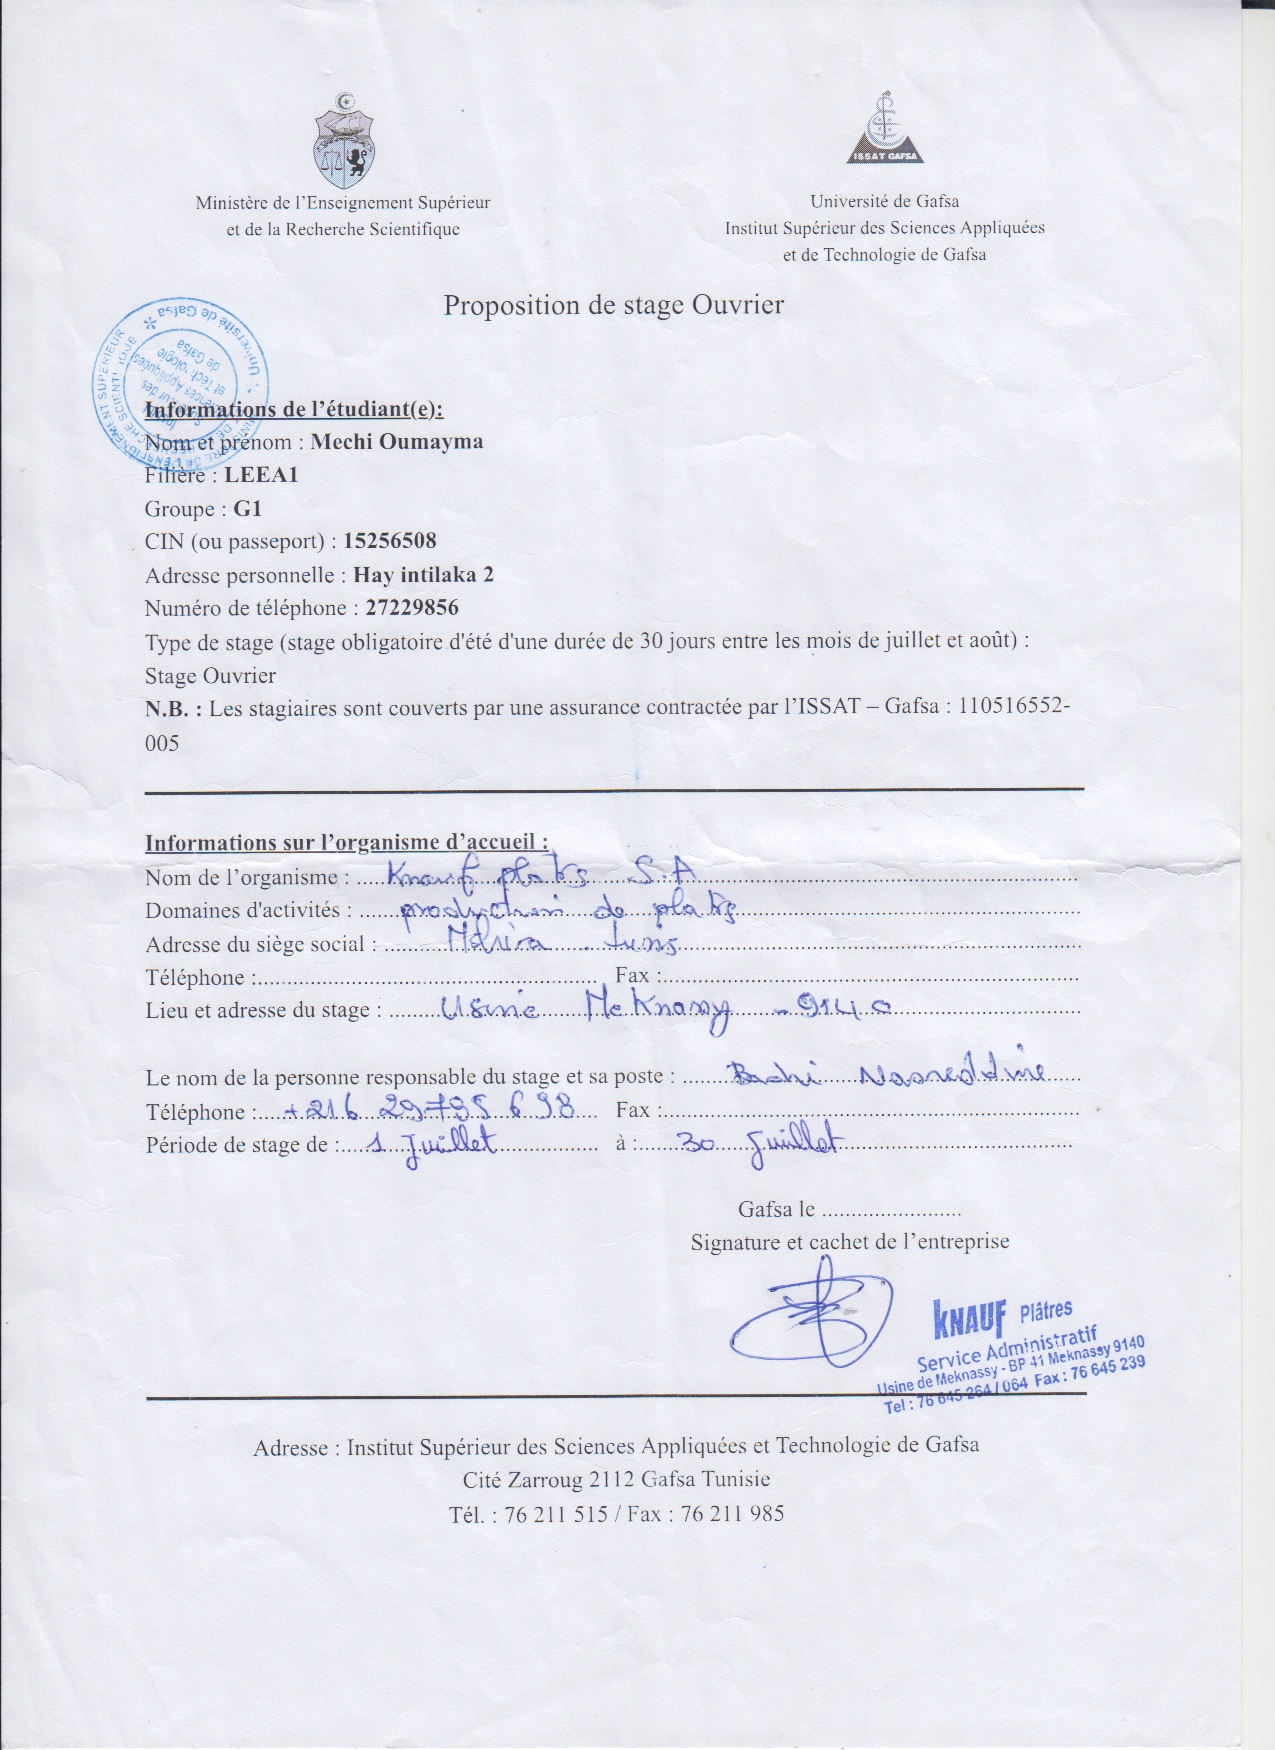 ISSAT GAFSA
Ministère de l'Enseignement Supérieur
et de la Recherche Scientifique
Université de Gafsa
Institut Supérieur des Sciences Appliquées
et de Technologie de Gafsa
Proposition de stage Ouvrier
Université de Gafsa
Informations de l'étudiant(e):
Nom et prénom : Mechi Oumayma
Filière : LEEA1
Groupe : G1
CIN (ou passeport) : 15256508
Adresse personnelle : Hay intilaka 2
Numéro de téléphone : 27229856
Type de stage (stage obligatoire d'été d'une durée de 30 jours entre les mois de juillet et août) :
Stage Ouvrier
N.B. : Les stagiaires sont couverts par une assurance contractée par l'ISSAT – Gafsa : 110516552-
005
Informations sur l'organisme d'accueil :
Nom de l'organisme : Knauf S.A
Domaines d'activités : production de
Adresse du siège social : Tunis
Téléphone : Fax :
Lieu et adresse du stage : Usine Meknassy - 9140
Le nom de la personne responsable du stage et sa poste : Nasreddine
Téléphone : +216 29 795 698 Fax :
Période de stage de : 1 Juillet à : 30 Juillet
Gafsa le
Signature et cachet de l'entreprise
KNAUF Plâtres
Service Administratif
Usine de Meknassy - BP 41 Meknassy 9140
Tel : 76 645 264 / 064 Fax : 76 645 239
Adresse : Institut Supérieur des Sciences Appliquées et Technologie de Gafsa
Cité Zarroug 2112 Gafsa Tunisie
Tél. : 76 211 515 / Fax : 76 211 985